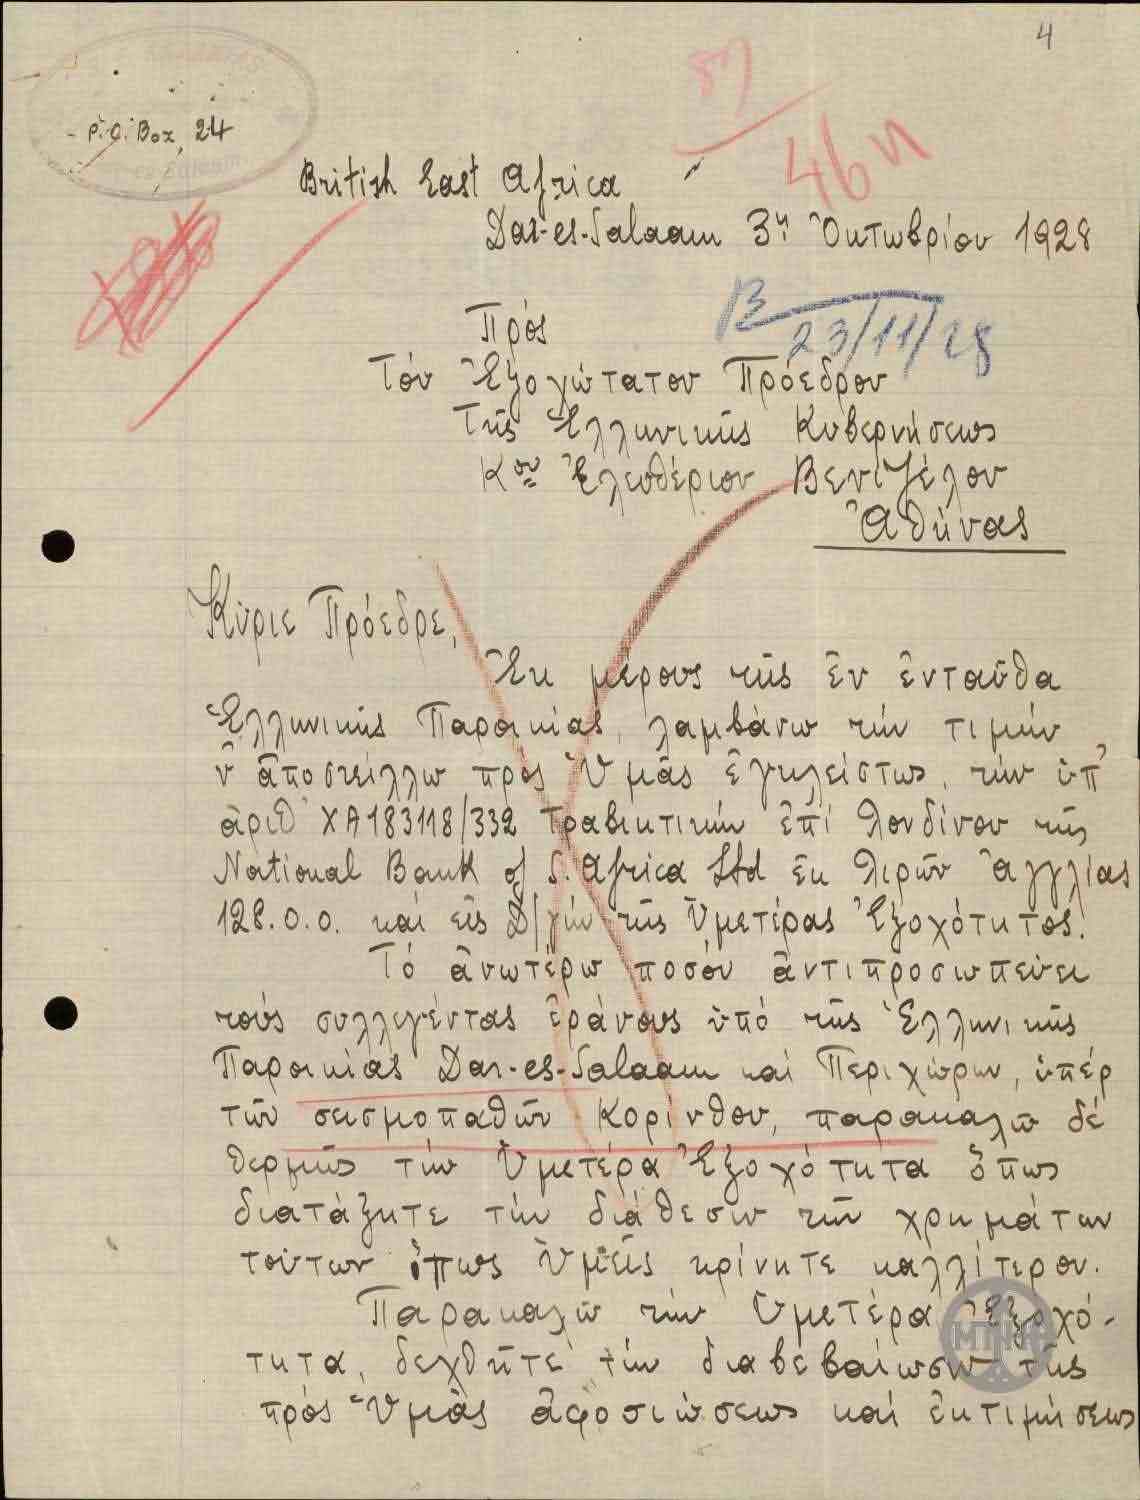 4
57
46 n
P.O. Box, 24
British East Africa
Dar-es-Salaam 3ῃ Ὀκτωβρίου 1928
23/11/28
Πρός
Τόν Ἐξοχώτατον Πρόεδρον
Τῆς Ἑλληνικῆς Κυβερνήσεως
Κον Ἐλευθέριον Βενιζέλον
Ἀθήνας
Κύριε Πρόεδρε,
Ἐκ μέρους τῆς ἐν ἐνταῦθα
Ἑλληνικῆς Παροικίας, λαμβάνω τήν τιμήν
ν' ἀποστείλλω πρός Ὑμᾶς ἐγκλείστως, τήν ὑπ'
ἀριθ' XA183118/332 Τραβηκτικήν ἐπί Λονδίνου τῆς
National Bank of S. Africa Ltd ἐκ Λιρῶν Ἀγγλίας
128.0.0. καί εἰς Δ/γήν τῆς Ὑμετέρας Ἐξοχότητος.
Τό ἀνωτέρω ποσόν ἀντιπροσωπεύει
τούς συλλεγέντας ἐράνους ὑπό τῆς Ἑλληνικῆς
Παροικίας Dar-es-Salaam καί Περιχώρων, ὑπέρ
τῶν σεισμοπαθῶν Κορίνθου, παρακαλῶ δέ
θερμῶς τήν Ὑμετέρα Ἐξοχότητα ὅπως
διατάξητε τήν διάθεσιν τῶν χρημάτων
τούτων ὅπως Ὑμεῖς κρίνητε καλλίτερον.
Παρακαλῶ τήν Ὑμετέρα Ἐξοχό-
τητα, δεχθῆτε τήν διαβεβαίωσιν τῆς
πρός Ὑμᾶς ἀφοσιώσεως καί ἐκτιμήσεως